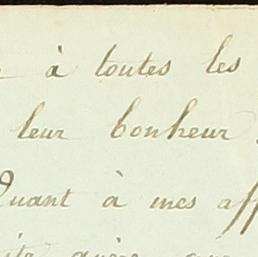 à toutes les
leur bonheur
Quant à mes aff